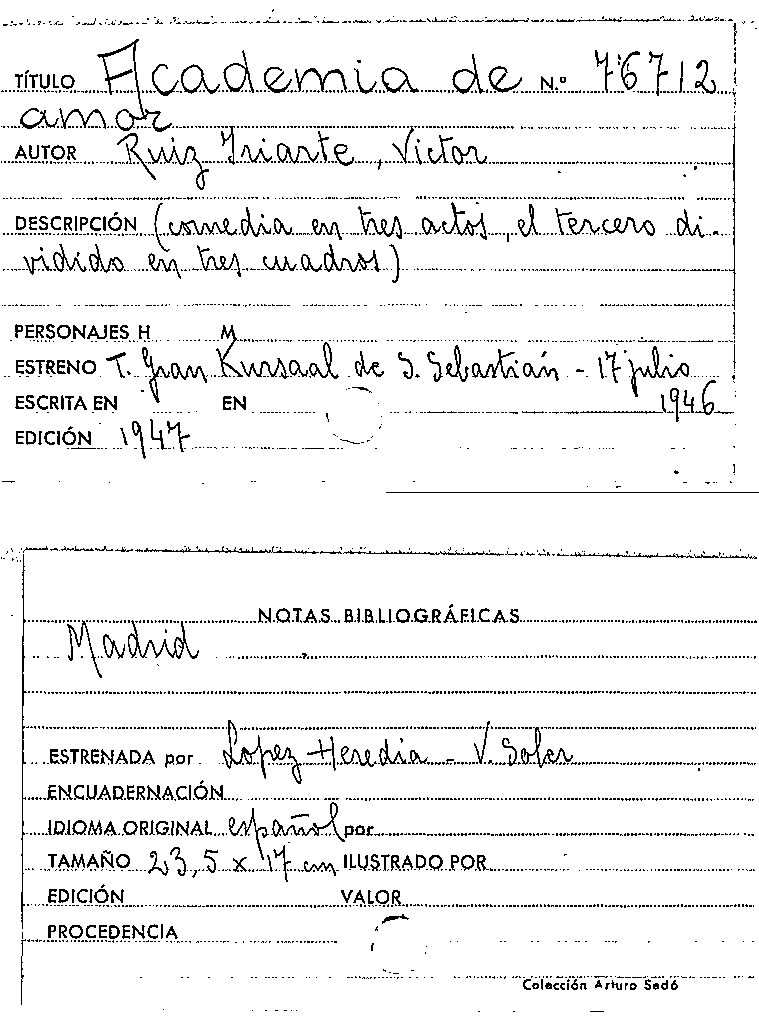 TÍTULO Academia de N.º 76712
amor
AUTOR Ruiz Iriarte, Victor
DESCRIPCIÓN (comedia en tres actos, el tercero di-
vidido en tres cuadros)
PERSONAJES H M
ESTRENO T. Gran Kursaal de S. Sebastián - 17 julio
ESCRITA EN EN 1946
EDICIÓN 1947
NOTAS BIBLIOGRÁFICAS
Madrid
ESTRENADA por Lopez Heredia - V. Soler
ENCUADERNACIÓN
IDIOMA ORIGINAL español por
TAMAÑO 23,5 x 17 cm ILUSTRADO POR
EDICIÓN VALOR
PROCEDENCIA
Colección Arturo Sedó